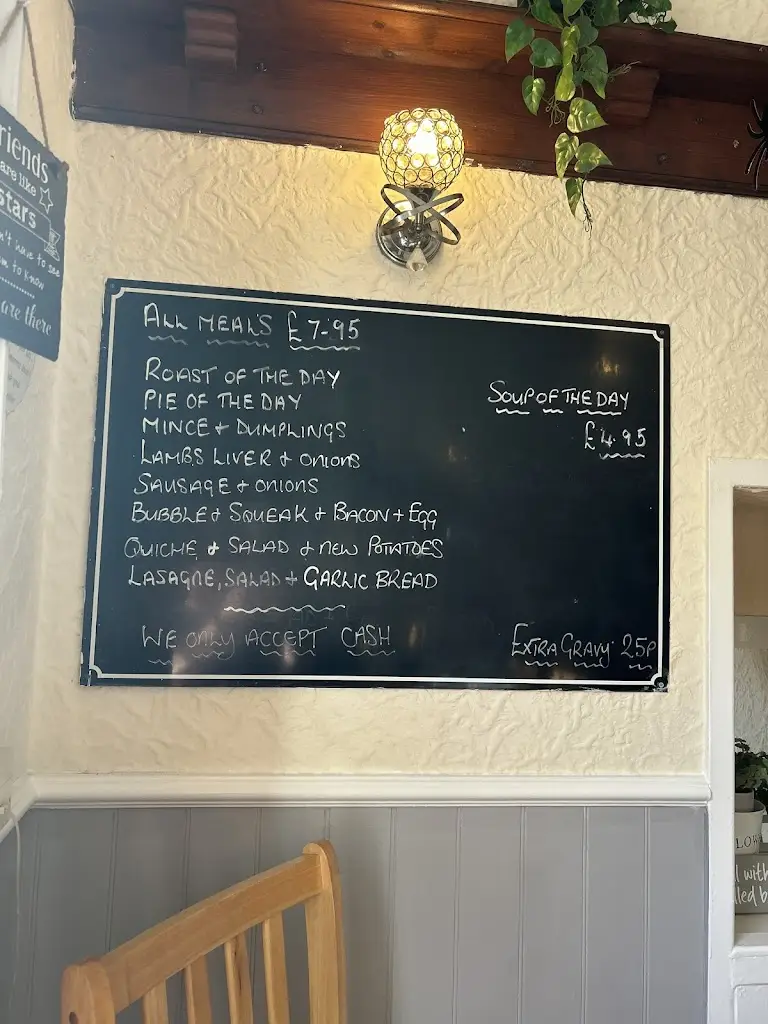 riends
are like
stars
n't have to see
m to know
are there
ALL MEALS £7-95
ROAST OF THE DAY
PIE OF THE DAY
MINCE + DUMPLINGS
LAMBS LIVER + ONIONS
SAUSAGE + ONIONS
BUBBLE + SQUEAK + BACON + EGG
QUICHE + SALAD + NEW POTATOES
LASAGNE, SALAD + GARLIC BREAD
WE ONLY ACCEPT CASH
SOUP OF THE DAY
£4.95
EXTRA GRAVY 25P
LOW
l with
led b